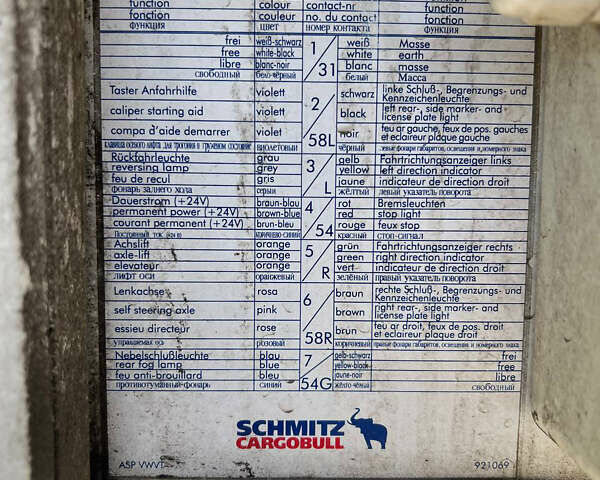 function colour contact-nr function
fonction couleur no. du contact fonction
функция цвет номер контакта функция
frei weiß-schwarz 1 weiß Masse
free white-black white earth
libre blanc-noir blanc masse
свободный бело-чёрный 31 белый Масса
Taster Anfahrhilfe violett 2 schwarz linke Schluß-, Begrenzungs- und Kennzeichenleuchte
caliper starting aid violett black left rear-, side marker- and license plate light
compa d'aide demarrer violet 58L noir feu ar gauche, feux de pos. gauches et eclaireur plaque gauche
клавиша осевого лифта для трогания в груженом состояние виолетовый чёрный левые фонари габаритов, освещения и номерного знака
Rückfahrleuchte grau 3 gelb Fahrtrichtungsanzeiger links
reversing lamp grey yellow left direction indicator
feu de recul gris L jaune indicateur de direction droit
фонарь заднего хода серый жёлтый левый указатель поворота
Dauerstrom (+24V) braun-blau 4 rot Bremsleuchten
permanent power (+24V) brown-blue red stop light
courant permanent (+24V) brun-bleu 54 rouge feux stop
Постоянный ток коричнево-синий красный стоп-сигнал
Achslift orange 5 grün Fahrtrichtungsanzeiger rechts
axle-lift orange green right direction indicator
elevateur orange R vert indicateur de direction droit
лифт оси оранжевый зелёный правый указатель поворота
Lenkachse rosa 6 braun rechte Schluß-, Begrenzungs- und Kennzeichenleuchte
self steering axle pink brown right rear-, side marker- and license plate light
essieu directeur rose 58R brun feu ar droit, feux de pos. droit et eclaireur plaque droit
управляемая ось розовый коричневый правые фонари габаритов, освещения и номерного знака
Nebelschlußleuchte blau 7 gelb-schwarz frei
rear fog lamp blue yellow-black free
feu anti-brouillard bleu jaune-noir libre
противотуманный-фонарь синий 54G жёлто-чёрный свободный
SCHMITZ
CARGOBULL
ASP VWVT 921069